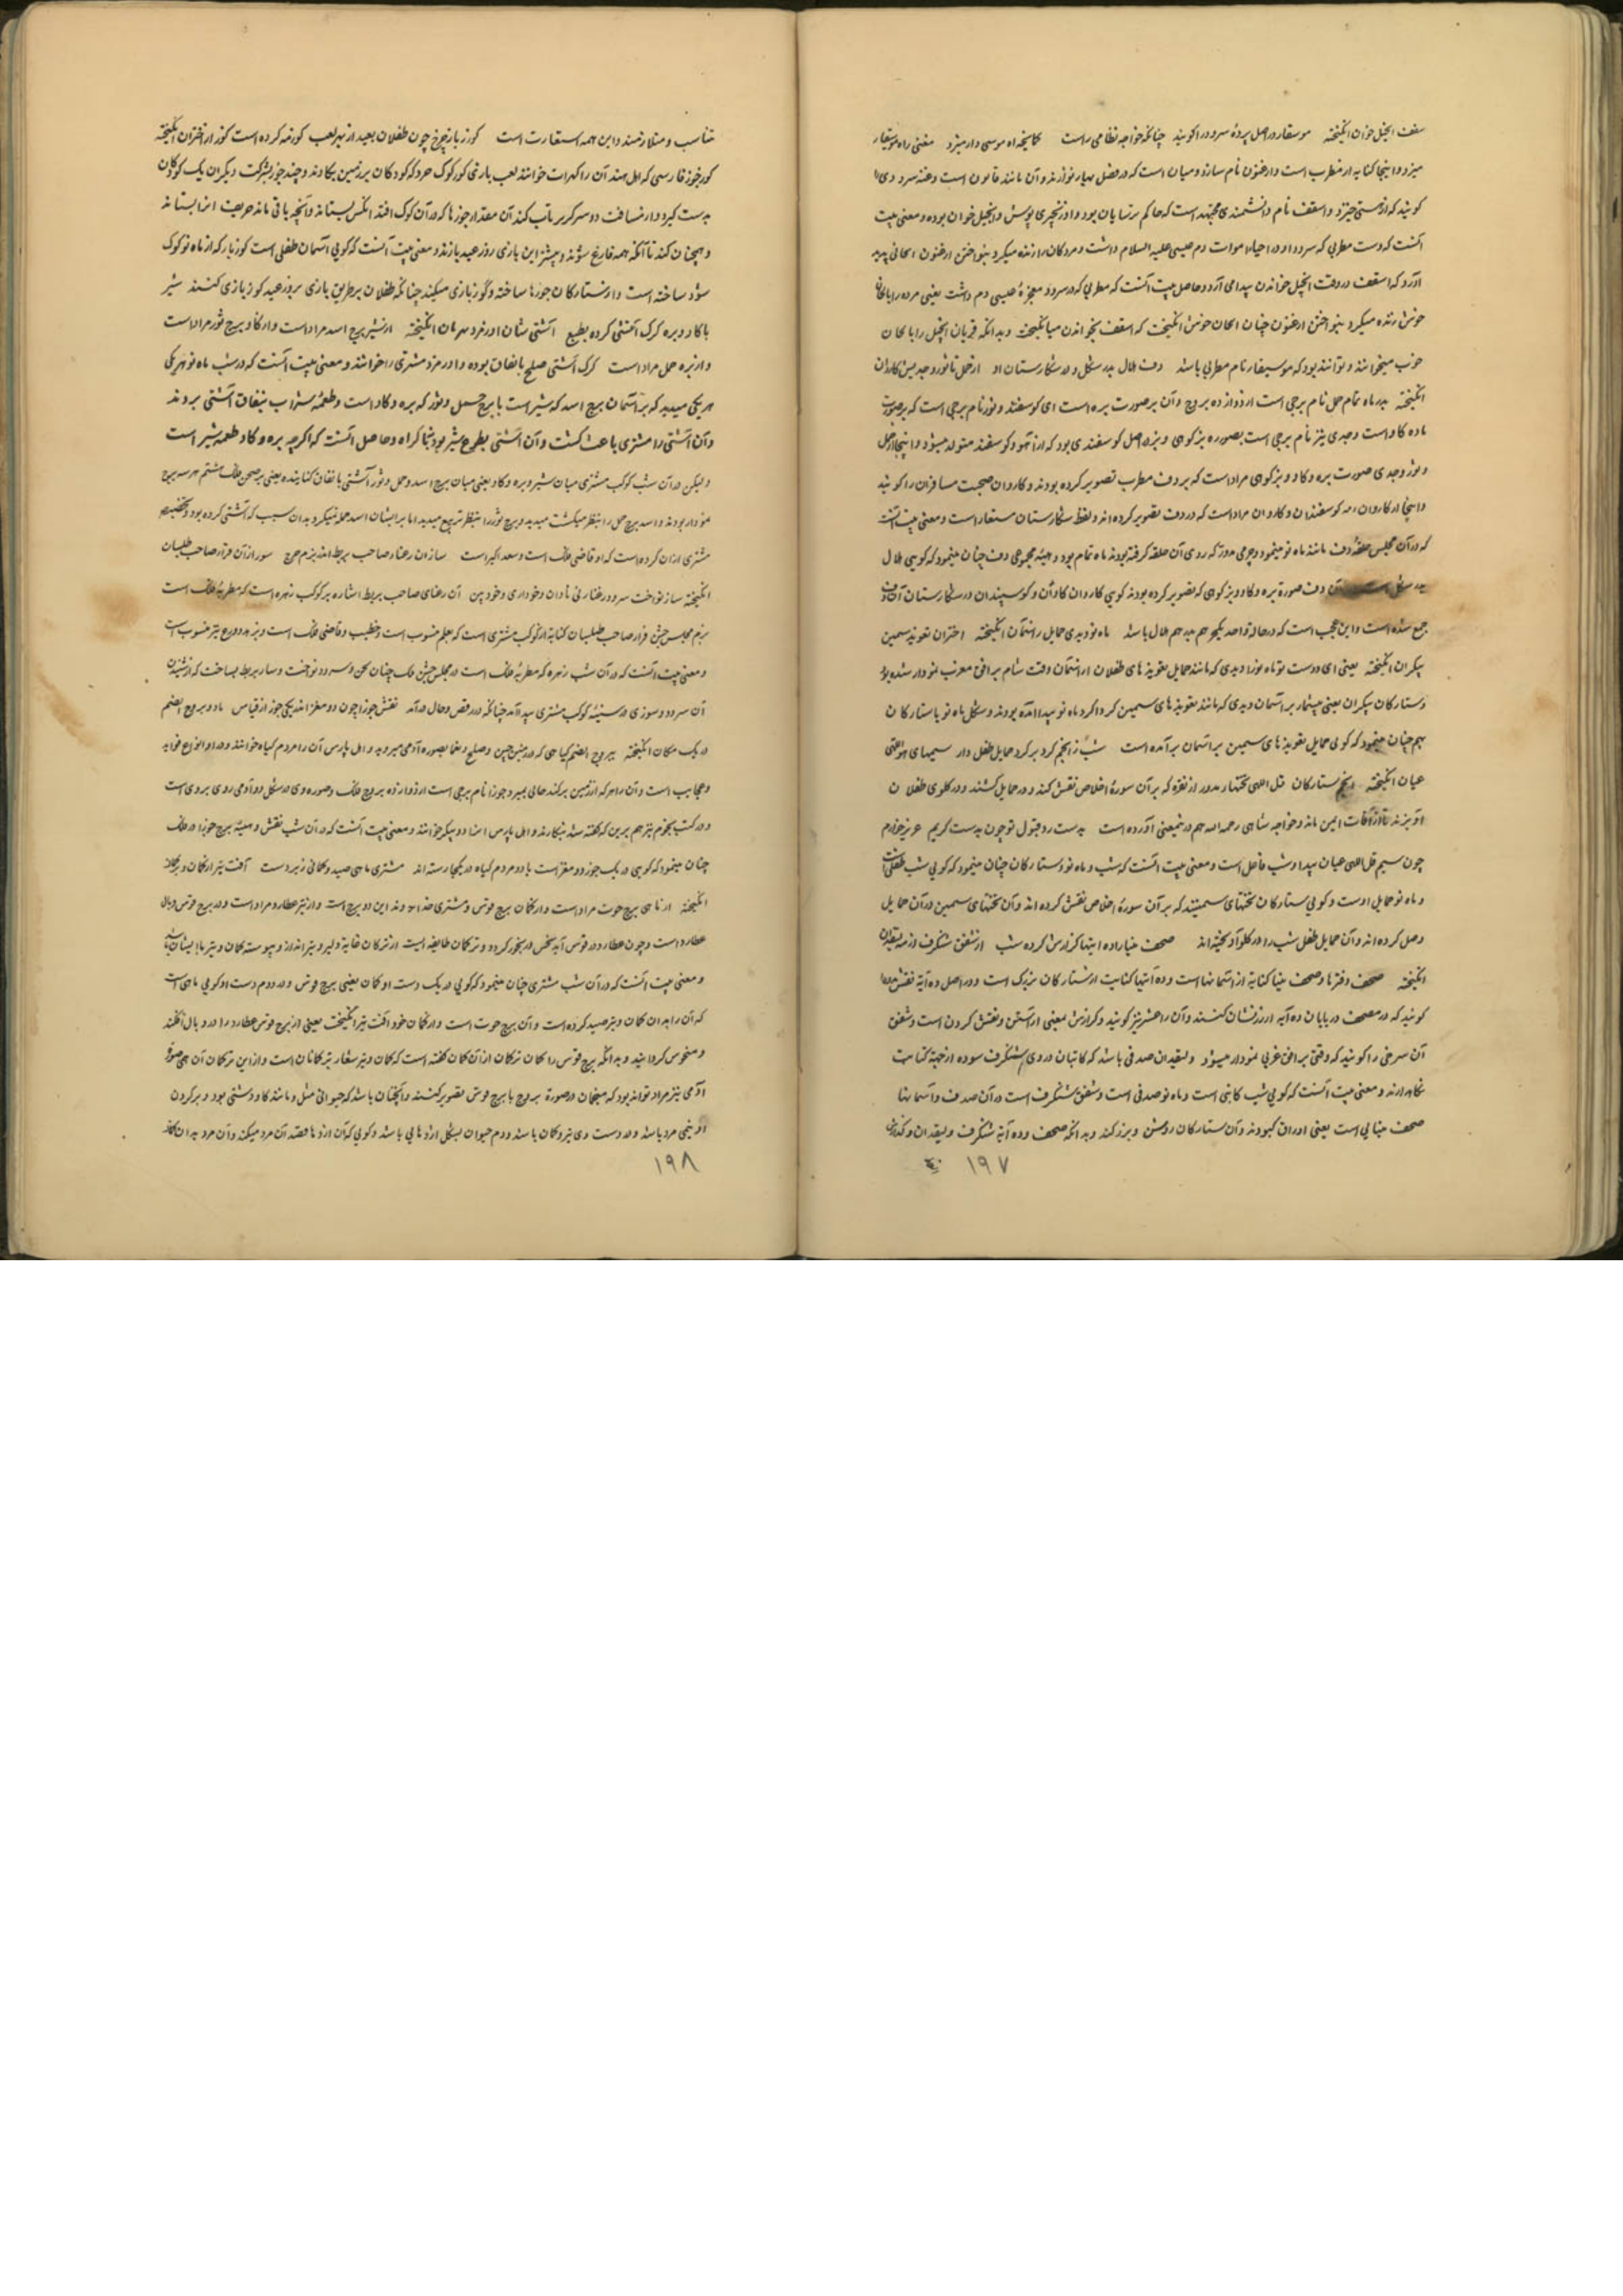 سقف انجیل خوان انگیخته موسیقار در اصل پردهٔ سرود را گویند چنانکه خواجه نظامی راست مغنی راه موسیقار
میزد و اینجا کنایه از مطرب است و ارغنون نام سازیست که در فصل بهار نوازند و آن مانند قانون است
گویند که از مستی خیزد و اسقف نام دانشمندی مجتهد است که حاکم ترسایان بود و انجیل خوان بوده و معنی بیت
آنست که دست مطربی که سرود او در احیاء اموات دم عیسی علیه السلام داشت و مردگان را زنده میکرد بنواختن ارغنون الحانی پدید
آورد که اسقف در وقت انجیل خواندن پیدا می آرد و حاصل بیت آنست که مطربی که در سرود معجزهٔ عیسی دم داشت یعنی مرده را بالحان
خوش زنده میکرد بنواختن ارغنون چنان الحان خوش انگیخت که اسقف بخواندن میانگیخت و بدانکه انجیل را بالحان
خوب میخوانند و تواند بود که موسیقار نام مطربی باشد دف هلال بدر شکل و در شکارستان او از حمل تا ثور و جدیش کاروان
انگیخته بدر ماه تمام حمل نام برجی است از دوازده بروج و آن بر صورت بره است ای گوسفند و ثور نام برجی است که بر صورت
ماده گاو است و جدی نیز نام برجی است بصوره بز کوهی و بز در اصل گوسفندی بود که از آهو و گوسفند متولد میشود و اینجا از حمل
و ثور و جدی صورت بره و گاو و بز کوهی مراد است که بر دف مطرب تصویر کرده بودند و کاروان صحبت مسافران را گویند
و اینجا از کاروان گوسفندان و گاوان مراد است که در دف تصویر کرده اند و لفظ شکارستان مستعار است و معنی بیت آنست
که در آن مجلس حلقهٔ دف مانند ماه نو مینمود و چرمی مدور که روی آن حلقه گرفته بودند ماه تمام بود و هیئه مجموعی دف چنان مینمود که گویی هلال
بدر شکل است آن دف صورة بره و گاو و بز کوهی که تصویر کرده بودند گویی کاروان گاوان و گوسپندان در شکارستان آن دف
جمع شده است و این عجب است که در حالة واحد یک چیز هم بدر هم هلال باشد ماه نو دیدی حمایل ز آسمان انگیخته اختران تعویذ سیمین
پیکران انگیخته یعنی ای دوست تو ماه نو را دیدی که مانند حمایل تعویذهای طفلان از آسمان وقت شام بر افق مغرب نمودار شده بود
و ستارگان پیکران یعنی بیشمار بر آسمان دیدی که مانند تعویذهای سیمین گرداگرد ماه نو پیدا آمده بودند و شکل ماه نو با ستارگان
بهم چنان مینمود که گویی حمایل تعویذهای سیمین بر آسمان بر آمده است شب ز انجم گرد بر گرد حمایل طفل وار سیمهای قل اللهی
عیان انگیخته انجم ستارگان قل اللهی تختهای مدور از نقره که بر آن سورهٔ اخلاص نقش کنند و در حمایل کشند و در گلوی طفلان
آویزند تا از آفات ایمن ماند و خواجه سنایی رحمه الله هم درین معنی آورده است بدست رد و قبول تو چون بدست کریم عزیز خوارم
چون سیم قل اللهی عیان پیدا و شب فاعل است و معنی بیت آنست که شب و ماه نو و ستارگان چنان مینمود که گویی شب طفلی است
و ماه نو حمایل اوست و گویی ستارگان تختهای سیمینند که بر آن سورهٔ اخلاص نقش کرده اند و آن تختهای سیمین در آن حمایل
وصل کرده اند و آن حمایل طفل شب را در گلو آویخته اند مصحف مینا را ده آیتها گزارش کرده شب از شفق شنگرف و ز مه لیقدان
انگیخته مصحف دفترها و مصحف مینا کنایة از آسمانها است و ده آیتها کنایت از ستارگان بزرگ است و در اصل ده آیة نقش
گویند که در مصحف در پایان ده آیه از زر نشان کنند و آن را عشر نیز گویند و گزارش بمعنی آراستن و نقش کردن است و شفق
آن سرخی را گویند که وقتی بر افق غربی نمودار میشود و لیقدان صدفی باشد که کاتبان در وی شنگرف سوده از جهة کتابت
نگاهدارند و معنی بیت آنست که گویی شب کاتبی است و ماه نو صدفی است و شفق شنگرف است در آن صدف و آسمانها
مصحف مینایی است یعنی اوراق کبودند و آن ستارگان روشن و بزرگند و بدانکه مصحف و ده آیة شنگرف و لیقدان و گذارش
۱۹۷
تناسب و متلازمند و این همه استعارت است گوز باز چرخ چون طفلان بعید از بهر لعب گو زمه کرده است گوز از اختران انگیخته
گوز جوز فارسی که اهل هند آن را خوانند لعب بازی گو گوک خرد که کودکان بر زمین بکاوند و چند جوز بشرکت دیگران یک کودکان
بدست گیرد و از مسافت دو سه گز پرتاب کند آن مقدار جوزها که در آن گوک افتد آنکس بستاند و آنچه باقی ماند حریف او بستاند
و همچنان کند تا آنکه همه فارغ شوند و بیشتر این بازی روز عید بازند و معنی بیت آنست که گویی آسمان طفلی است گوز باز که از ماه نو گوک
سؤد ساخته است و از ستارگان جوزها ساخته و گوز بازی میکند چنانکه طفلان بر طریق بازی بروز عید گوز بازی کنند شیر
با گاو و بره گرگ آشتی کرده بطبع آشتی شان اورمزد مهربان انگیخته از شیر برج اسد مراد است و از گاو برج ثور مراد است
و از بره حمل مراد است گرگ آشتی صلح با نفاق بوده و اورمزد مشتری را خوانند و معنی بیت آنست که در شب ماه نو هر یکی
هر یکی میدید که بر آسمان برج اسد که شیر است با برج حمل و ثور که بره و گاو است و طعمهٔ شیر است بنفاق آشتی بردند
و آن آشتی را مشتری باعث گشت و آن آشتی بطوع شیر بود نه باکراه و حاصل آنست که اگرچه بره و گاو طعمه شیر است
و لیکن در آن شب کوکب مشتری میان شیر و بره و گاو یعنی میان برج اسد و حمل و ثور آشتی با نفاق کنایده یعنی بر صحن فلک هشتم هر سه برج
نمودار بودند و اسد برج حمل را بنظر میگشت میدید و برج ثور را بنظر تربیع میدید اما بر ایشان اسد حمله نمیکرد بدان سبب که آشتی کرده بود و تخصیص
مشتری از آن کرده است که او قاضی فلک است و سعد اکبر است سازان رعنا و صاحب بربط اندر بزم چرخ سوز از آن قرا و صاحب طیلسان
انگیخته ساز نواخت سرود رعنا زنی نادان و خودآرای و خودبین آن رعنای صاحب بربط اشاره بر کوکب زهره است که مطربهٔ فلک است
بزم مجلس جشن قرا و صاحب طیلسان کنایة از کوکب مشتری است که بعلم منسوب است و خطیب و قاضی فلک است و بزهد و ورع نیز منسوب است
و معنی بیت آنست که در آن شب زهره که مطربهٔ فلک است در مجلس جشن فلک چنان لحن و سرود نواخت و ساز بربط بساخت که از شنیدن
آن سرود و سوزی در سینهٔ کوکب مشتری پیدا آمد چنانکه در رقص و حال درآمد نقش جوزا چون دو مغز اندر یکی جوز از قیاس یا دو بیروج الصنم
در یک مکان انگیخته بیروج الصنم گیاهی که در زمین چین بصوره آدمی میروید و اهل پارس آن را مردم گیاه خوانند و در او انواع فواید
و عجایب است و آن را هر که از زمین برکند حالی بمیرد و جوزا نام برجی است از دوازده بروج فلک و صوره وی در شکل دو آدمی روی بروی است
و در کتب نجوم نیز هم برین که گفته شد بنگارند و اهل پارس او را دو پیکر خوانند و معنی بیت آنست که در آن شب نقش و هیئة برج جوزا در فلک
چنان مینمود که گویی در یک جوز دو مغز است یا دو مردم گیاه در یکجا رسته اند مشتری ماهی صید و کمانی زیر دست آفت تیر از کمان ترکمان
انگیخته از ماهی برج حوت مراد است و از کمان برج قوس و مشتری خداوند این دو برج است و از تیر عطارد مراد است و در برج قوس وبال
عطارد است و چون عطارد در قوس آید نحس و رنجور گردد و ترکمان طایفه ایست از ترکان غایة دلیر و تیرانداز و پیوسته کمان و تیر با ایشان باشد
و معنی بیت آنست که در آن شب مشتری چنان مینمود که گویی در یک دست او کمان یعنی برج قوس و در دوم دست او گویی ماهی است
که آن را بدان کمان و تیر صید کرده است و آن برج حوت است و از کمان خود آفت تیر انگیخت یعنی از برج قوس عطارد را در وبال افکند
و منحوس گردانید و بدانکه برج قوس را کمان ترکان از آن کمان گفته است که کمان و تیر شعار ترکمانان است و از این ترکمان آن هم صورة
آدمی نیز مراد تواند بود که منجمان در صورة بروج با برج قوس تصویر کنند و آنچنان باشد که حیوانی مثل و مانند گاو دشتی بود و بر گردن
او نیمی مرد باشد و در دست وی تیر و کمان باشد و دم حیوان بشکل اژدهایی باشد و گویی که آن اژدها قصد آن مرد میکند و آن مرد بدان کمان
۱۹۸